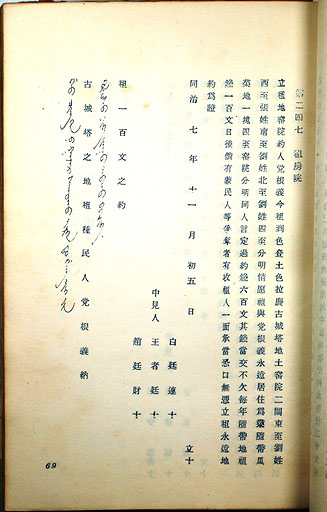 第二四七 租房院
立租地窑院約人党根義今租到色登土色拉廢古城塔地土窑院二間東至劉姓
西至張姓南至劉姓北至劉姓四至分明情愿租與党根義永遠居住爲業隨帶瓜
英地一塊四至窑院分明同人言定過約錢六百文其錢當交不欠每年隨帶地租
錢一百文日後倘有蒙民人等爭奪者有收租人一面承當恐口無憑立租永遠地
約爲證
同治 七 年 十一 月 初五 日 立十
白廷蓮 十
中見人 王者廷 十
趙廷財 十
租一百文之約
古城塔之地租種民人党根義納
69